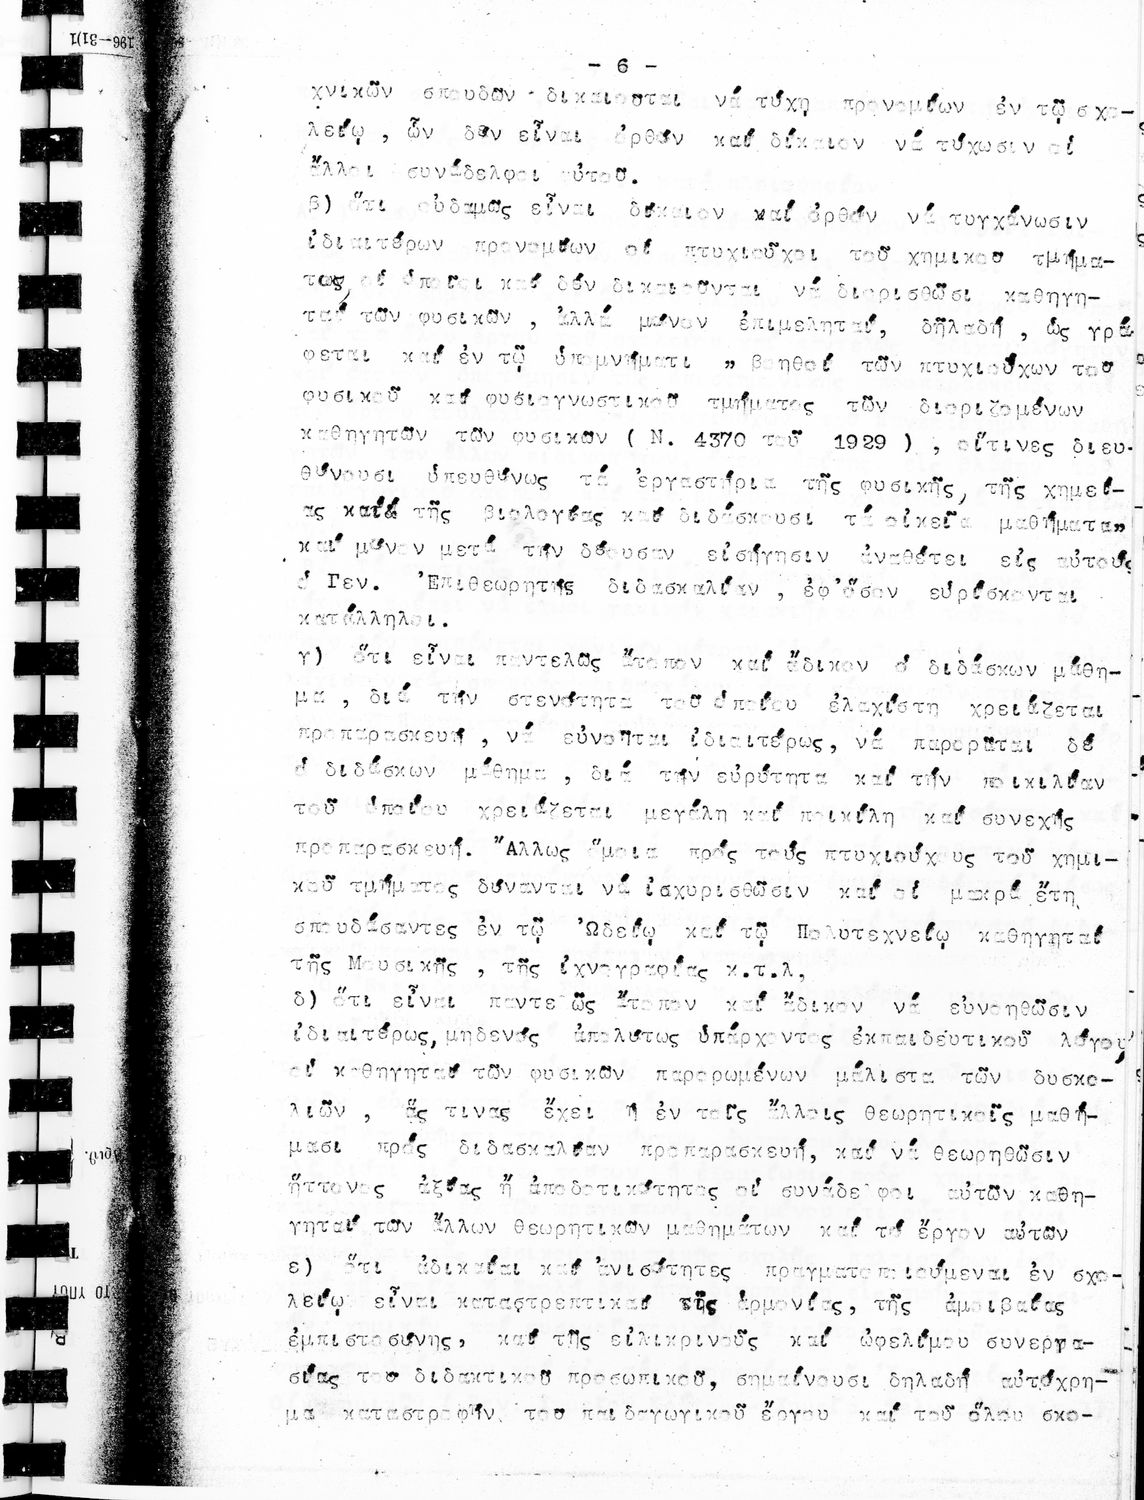 - 6 -
χνικῶν σπουδῶν δικαιοῦται νά τύχη προνομίων ἐν τῷ σχο-
λείῳ , ὧν δέν εἶναι ὀρθόν καί δίκαιον νά τύχωσιν οἱ
ἄλλοι συνάδελφοι αὐτοῦ.
β) ὅτι οὐδαμῶς εἶναι δίκαιον καί ὀρθόν νά τυγχάνωσιν
ἰδιαιτέρων προνομίων οἱ πτυχιοῦχοι τοῦ χημικοῦ τμήμα-
τος, οἱ ὁποῖοι καί δέν δικαιοῦνται νά διορισθῶσι καθηγη-
ταί τῶν φυσικῶν , ἀλλά μόνον ἐπιμεληταί, δηλαδή , ὡς γρά
φεται καί ἐν τῷ ὑπομνήματι " βοηθοί τῶν πτυχιούχων τοῦ
φυσικοῦ καί φυσιογνωστικοῦ τμήματος τῶν διοριζομένων
καθηγητῶν τῶν φυσικῶν ( Ν. 4370 τοῦ 1929 ) , οἵτινες διευ-
θύνουσι ὑπευθύνως τά ἐργαστήρια τῆς φυσικῆς, τῆς χημεί-
ας καί τῆς βιολογίας καί διδάσκουσι τά οἰκεῖα μαθήματα"
καί μόνον μετά τήν δέουσαν εἰσήγησιν ἀναθέτει εἰς αὐτούς
ὁ Γεν. Ἐπιθεωρητής διδασκαλίαν , ἐφ'ὅσον εὑρίσκονται
κατάλληλοι.
γ) ὅτι εἶναι παντελῶς ἄτοπον καί ἄδικον ὁ διδάσκων μάθη-
μα , διά τήν στενότητα τοῦ ὁποίου ἐλαχίστη χρειάζεται
προπαρασκευή , νά εὐνοῆται ἰδιαιτέρως, νά παρορᾶται δέ
ὁ διδάσκων μάθημα , διά τήν εὐρύτητα καί τήν ποικιλίαν
τοῦ ὁποίου χρειάζεται μεγάλη καί ποικίλη καί συνεχής
προπαρασκευή. Ἄλλως ὅμοια πρός τούς πτυχιούχους τοῦ χημι-
κοῦ τμήματος δύνανται νά ἰσχυρισθῶσιν καί οἱ μακρά ἔτη
σπουδάσαντες ἐν τῷ Ὠδείῳ καί τῷ Πολυτεχνείῳ καθηγηταί
τῆς Μουσικῆς , τῆς ἰχνογραφίας κ.τ.λ,
δ) ὅτι εἶναι παντελῶς ἄτοπον καί ἄδικον νά εὐνοηθῶσιν
ἰδιαιτέρως, μηδενός ἀπολύτως ὑπάρχοντος ἐκπαιδευτικοῦ λόγου,
οἱ καθηγηταί τῶν φυσικῶν παρορωμένων μάλιστα τῶν δυσκο-
λιῶν , ἅς τινας ἔχει ἡ ἐν τοῖς ἄλλοις θεωρητικοῖς μαθή-
μασι πρός διδασκαλίαν προπαρασκευή, καί νά θεωρηθῶσιν
ἥττονος ἀξίας ἤ ἀποδοτικότητος οἱ συνάδελφοι αὐτῶν καθη-
γηταί τῶν ἄλλων θεωρητικῶν μαθημάτων καί τό ἔργον αὐτῶν
ε) ὅτι ἀδικίαι καί ἀνισότητες πραγματοποιούμεναι ἐν σχο-
λείῳ εἶναι καταστρεπτικαί τῆς ἁρμονίας, τῆς ἀμοιβαίας
ἐμπιστοσύνης, καί τῆς εἰλικρινοῦς καί ὠφελίμου συνεργα-
σίας τοῦ διδακτικοῦ προσωπικοῦ, σημαίνουσι δηλαδή αὐτόχρη-
μα καταστροφήν τοῦ παιδαγωγικοῦ ἔργου καί τοῦ ὅλου σκο-